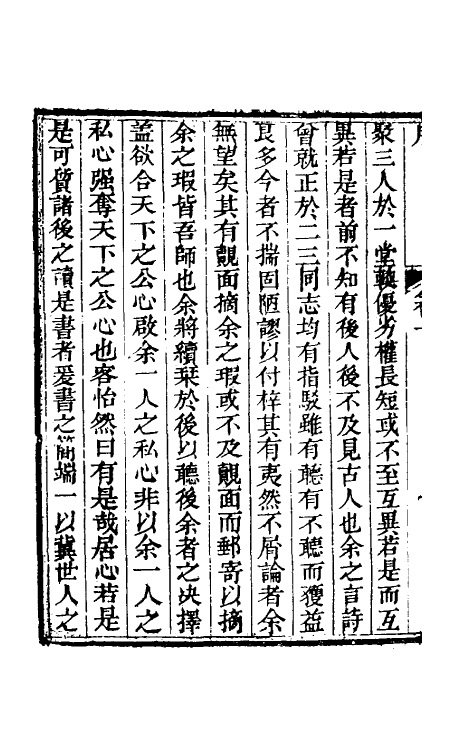 聚三人於一堂較優劣權長短或不至互異若是而互
異若是者前不知有後人後不及見古人也余之言詩
曾就正於二三同志均有指駁雖有聽有不聽而獲益
良多今者不揣固陋謬以付梓其有夷然不屑論者余
無望矣其有覿面摘余之瑕或不及覿面而郵寄以摘
余之瑕皆吾師也余將續栞於後以聽後余者之决擇
盖欲合天下之公心啟余一人之私心非以余一人之
私心强奪天下之公心也客怡然曰有是哉居心若是
是可質諸後之讀是書者爰書之簡端一以冀世人之